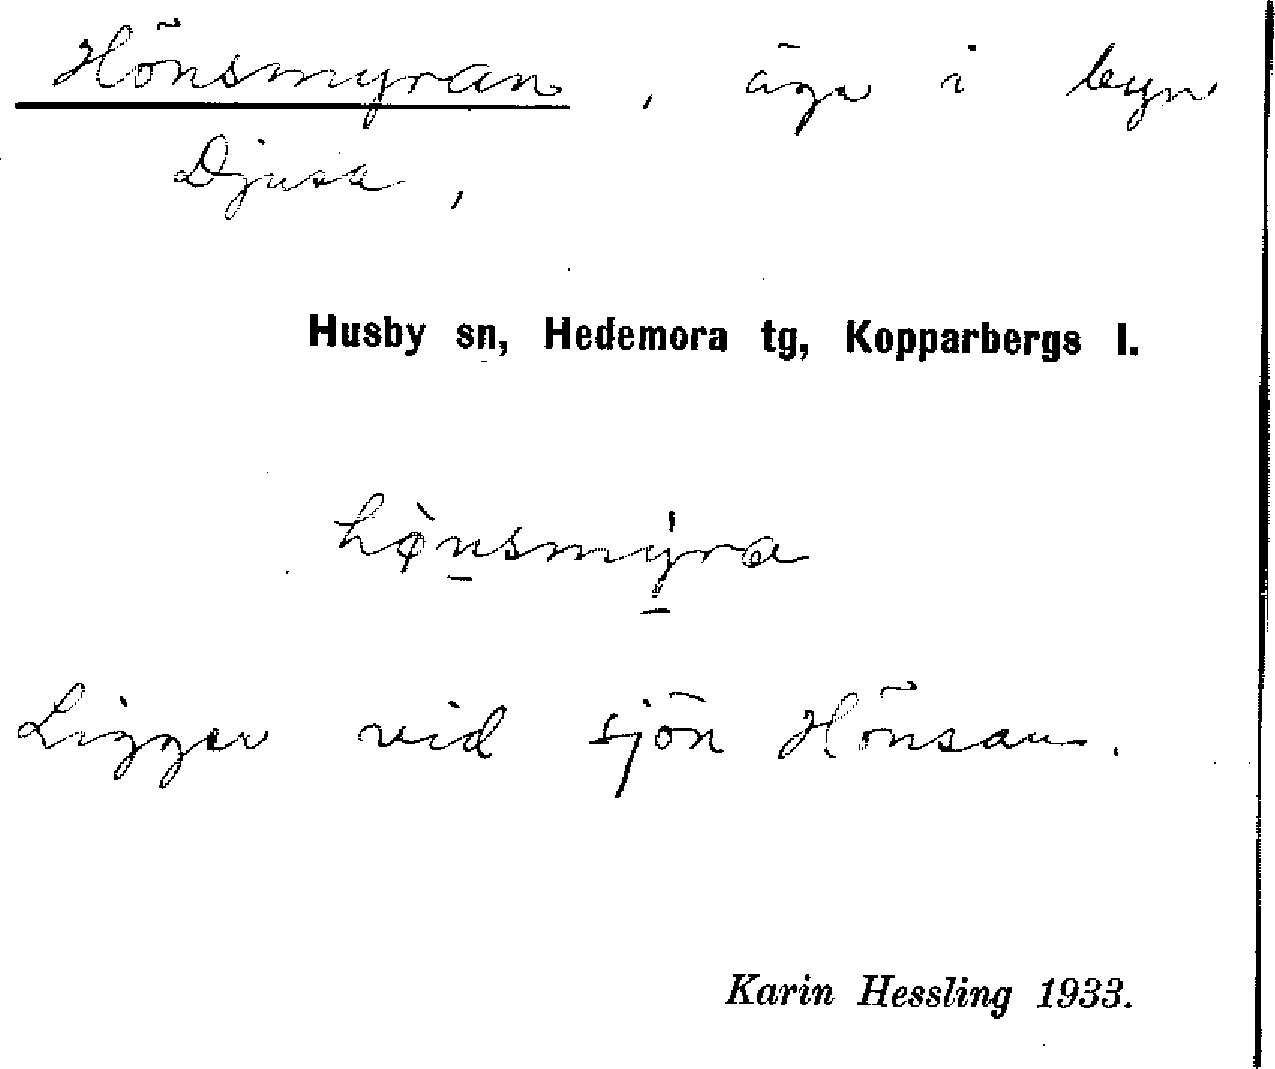 Hönsmyran, äga i byn
Djusa,
Husby sn, Hedemora tg, Kopparbergs l.
hø̀nsmỳra
Ligger vid sjön Hönsan.
Karin Hessling 1933.